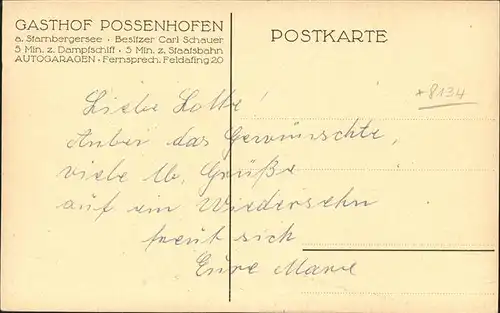 GASTHOF POSSENHOFEN
a. Starnbergersee · Besitzer Carl Schauer
5 Min. z. Dampfschiff · 5 Min. z. Staatsbahn
AUTOGARAGEN · Fernsprech. Feldafing 20
POSTKARTE
*8134
Liebe Lotte!
Anbei das Gewünschte,
viele lb. Grüße
auf ein Wiedersehn
freut sich
Eure